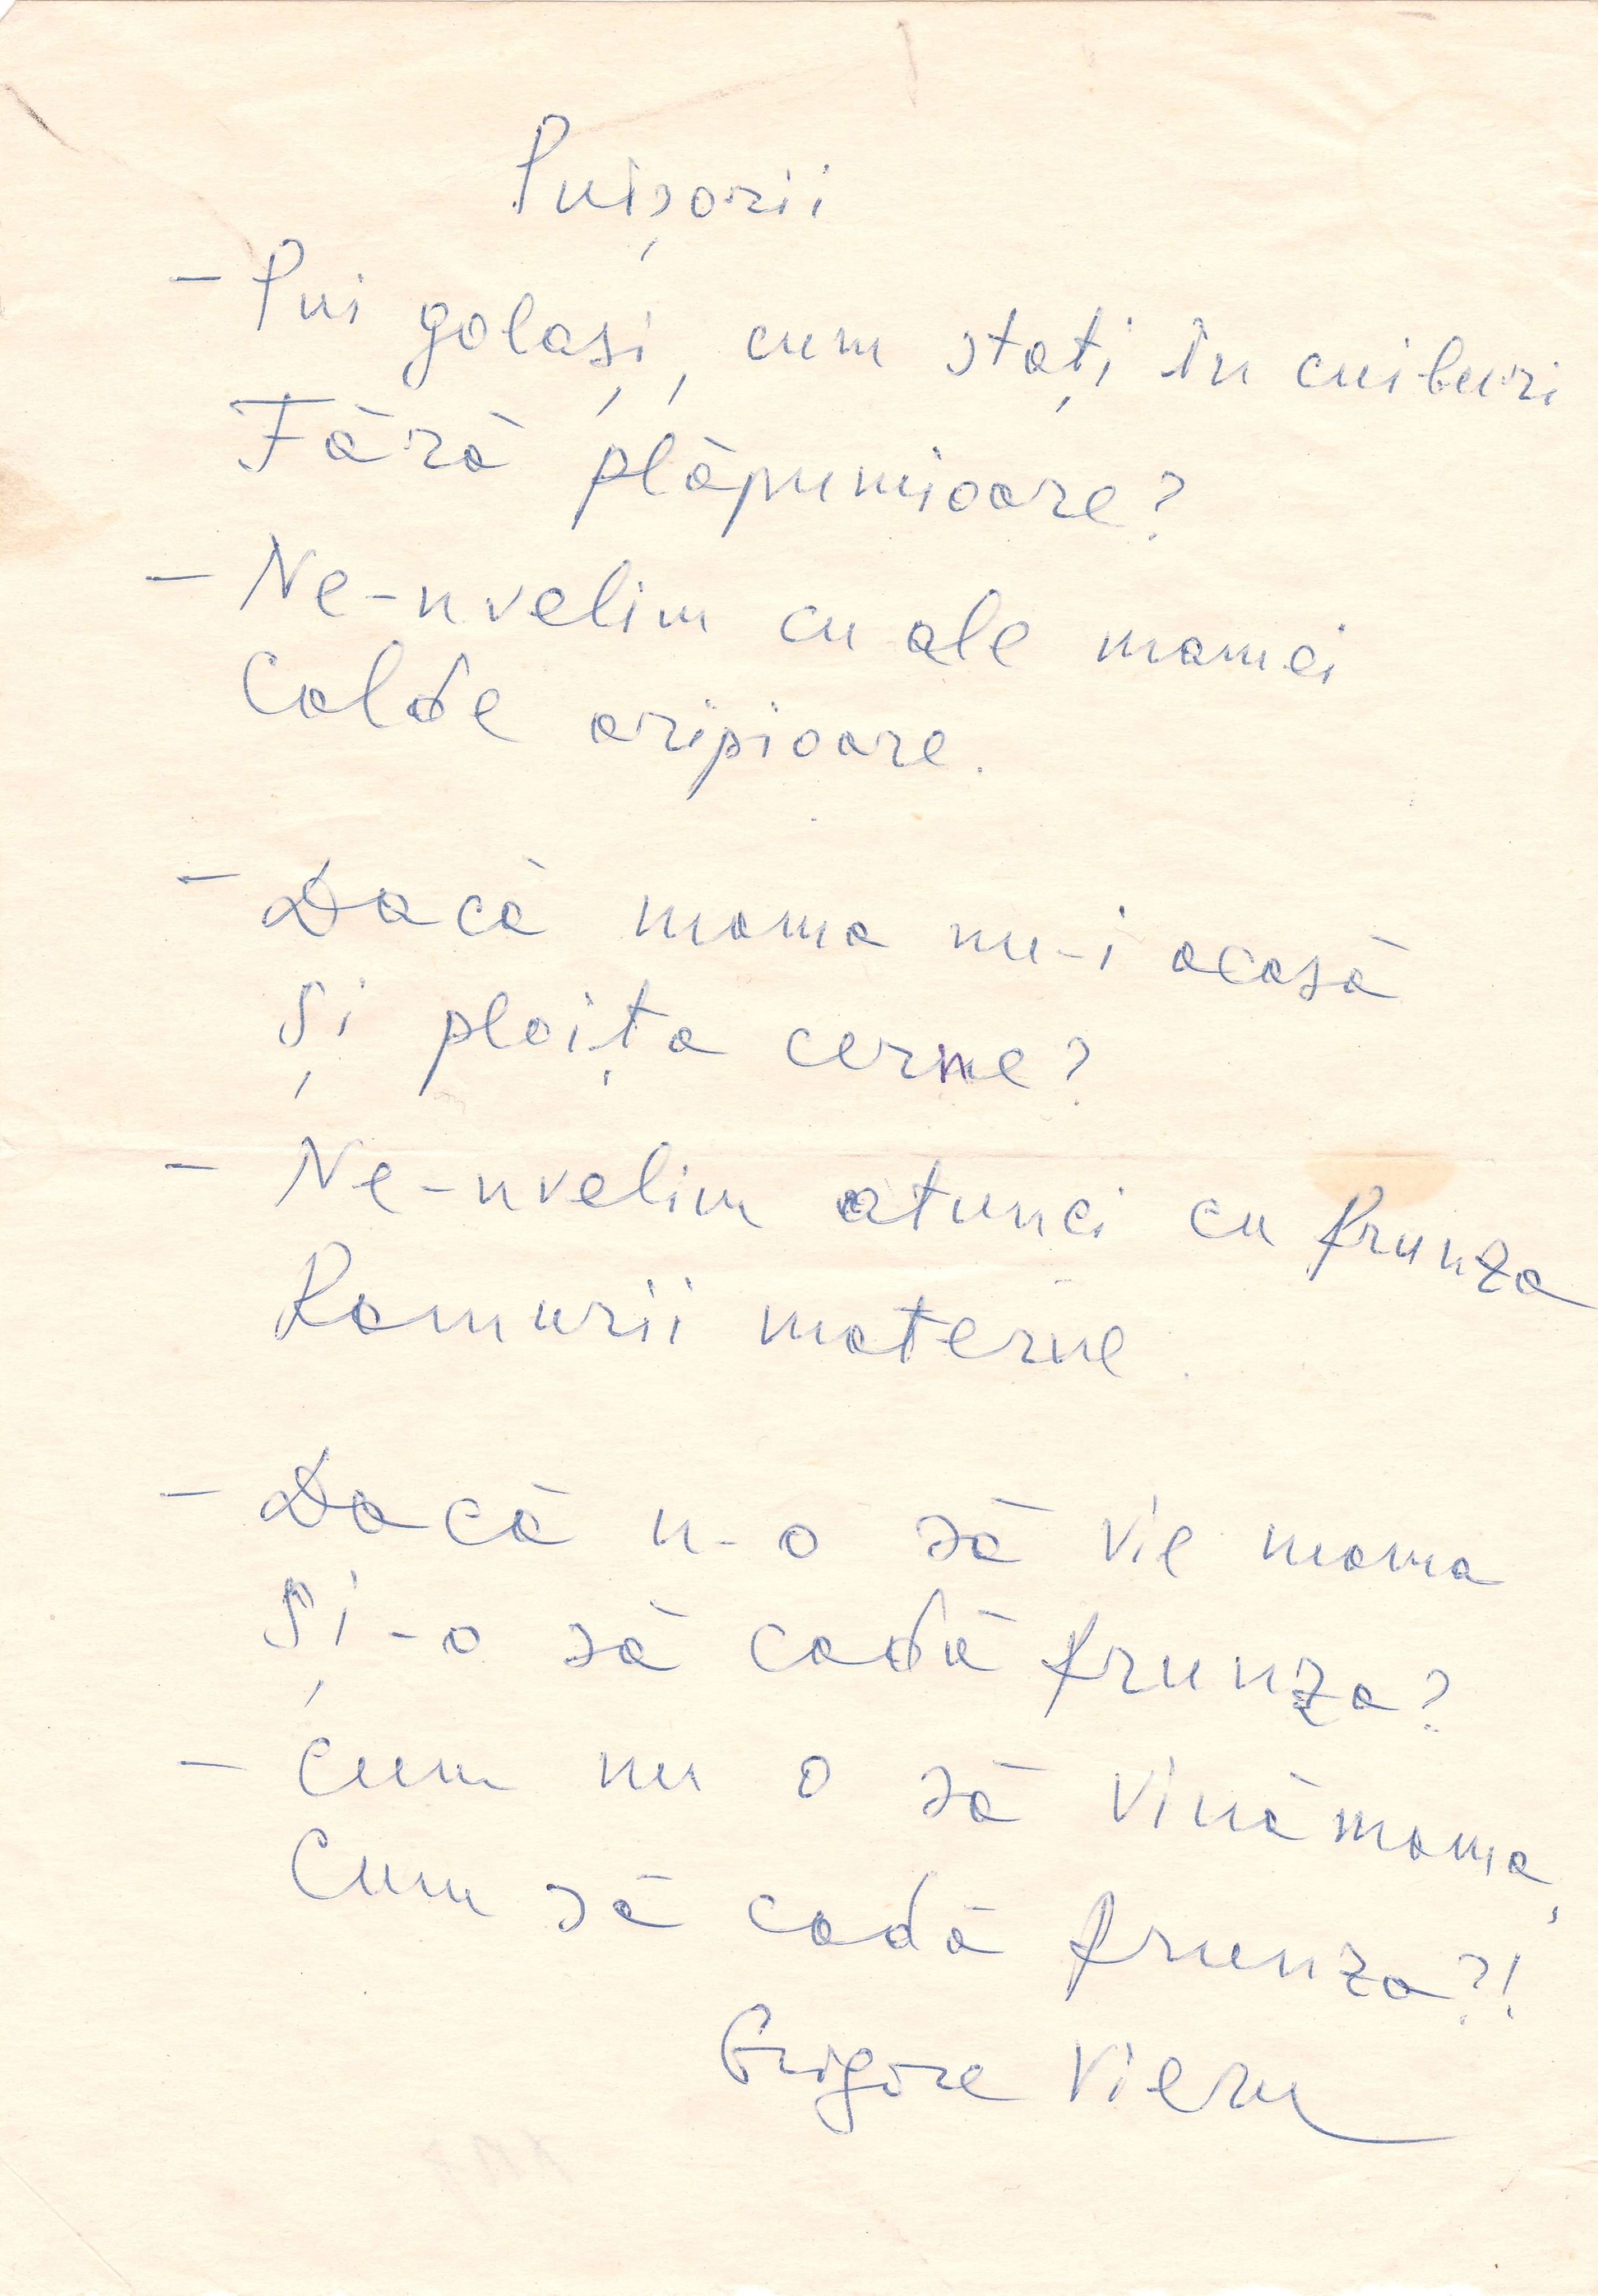 Puișorii
– Pui golași, cum stați în cuiburi
Fără plăpumioare?
– Ne-nvelim cu ale mamei
Calde aripioare.
– Dacă mama nu-i acasă
Și ploița cerne?
– Ne-nvelim atunci cu frunza
Ramurii materne.
– Dacă n-o să vie mama
Și-o să cadă frunza?
– Cum nu o să vină mama,
Cum să cadă frunza?!
Grigore Vieru